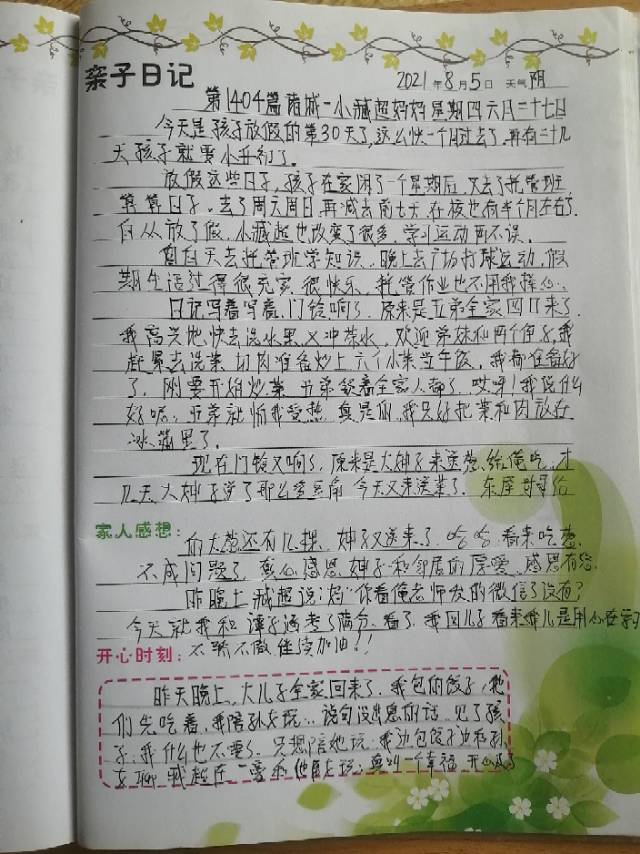 亲子日记 2021年8月5日 天气 阴
第1404篇 诸城-小臧超妈妈 星期四 六月二十七日
今天是孩子放假的第30天了,这么快一个月过去了,再有二十几
天孩子就要小升初了。
放假这些日子,孩子在家闲了一个星期后,又去了托管班
算算日子,去了周六周日,再减去前七天,在校也有半个月左右了.
自从放了假,小臧超也改变了很多,学习运动两不误.
白天去托管班学知识,晚上去广场打球运动,假
期生活过得很充实,很快乐,托管作业也不用我操心.
日记写着写着,门铃响了,原来是五弟全家四口来了.
我高兴地快去洗水果,又冲茶水,欢迎弟妹和两个侄子,我
赶紧去洗菜,切肉准备炒上六个小菜当午饭,我都准备好
了,刚要开始炒菜,五弟领着全家人都了,哎呀!我说什么
好呢,五弟就怕我受热,真是的,我只好把菜和肉放在
冰箱里了.
现在门铃又响了,原来是大婶子来送葱,给俺吃,才
几天,大婶子送了那么多豆角,今天又来送菜了,东屋哥哥给
家人感想:
的大葱还有几棵,婶子又送来了,哈哈,看来吃葱
不成问题了,衷心感恩婶子和邻居的厚爱,感恩有您.
昨晚上臧超说:妈,你看俺老师发的微信了没有?
今天就我和谭子涵考了满分,看了,我回儿子看来我儿是用心在学习
开心时刻: 不骄不傲继续加油!!
昨天晚上,大儿子全家回来了,我包的饺子,他
们先吃着,我陪孙女玩,说句没出息的话,见了孩
子,我什么也不要了,只想陪她玩,我边包饺子边和孙